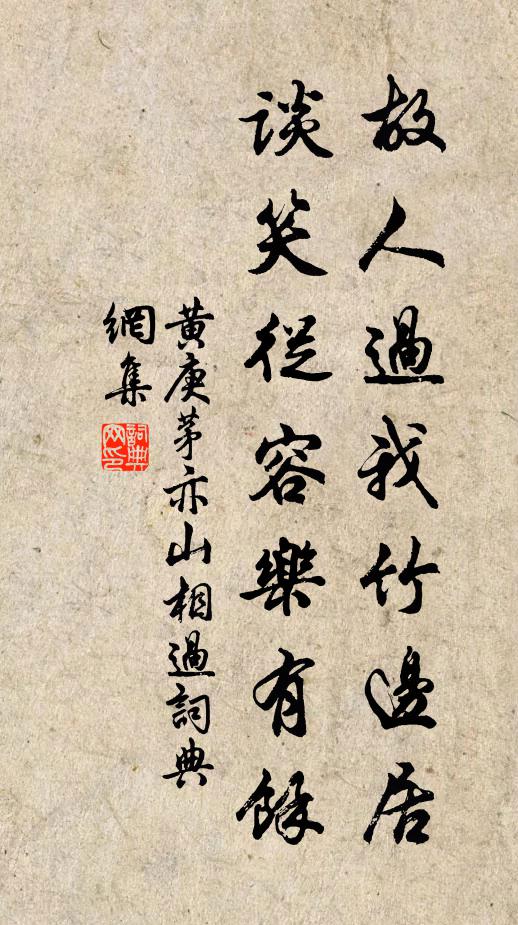 故人過我竹邊居
談笑從容樂有餘
黄庚茅亦山相過詞典
網集
詞典
网印